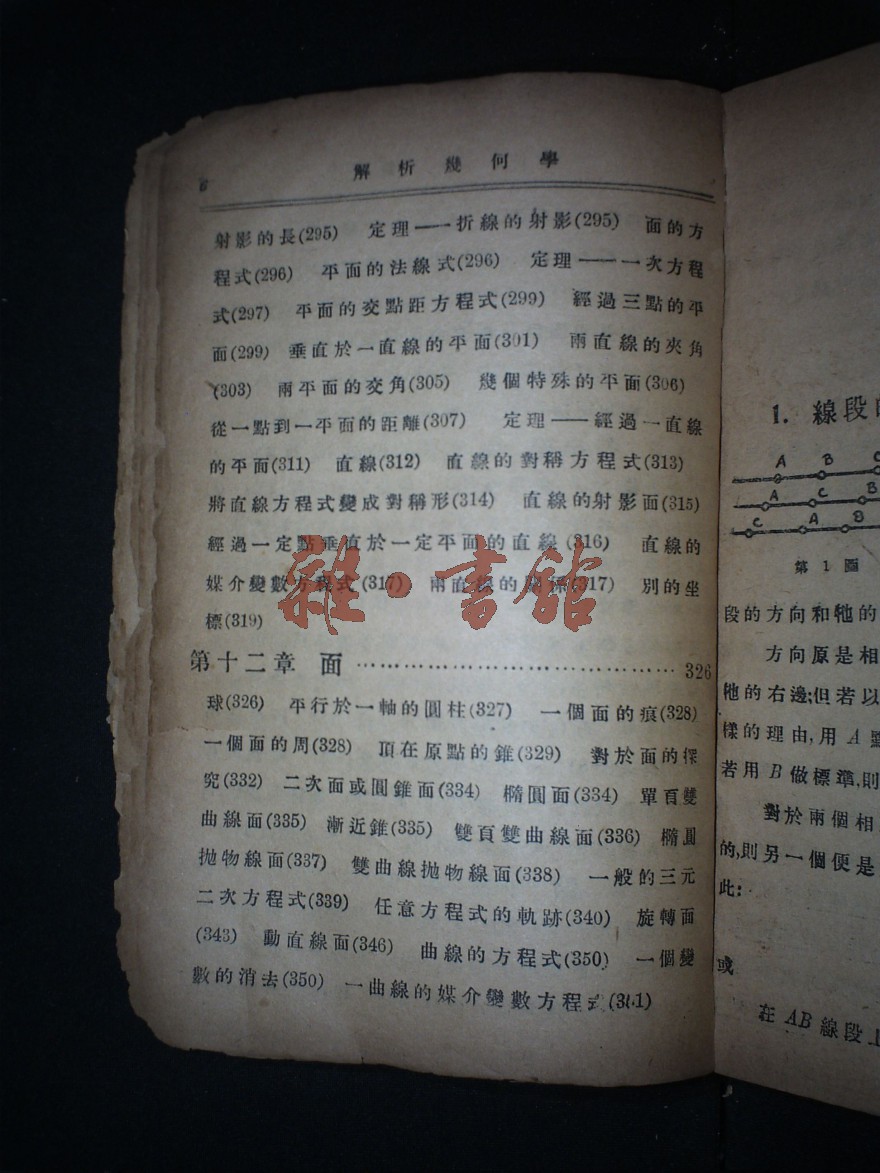 6 解析幾何學
射影的長(295) 定理——一折線的射影(295) 面的方
程式(296) 平面的法線式(296) 定理——一次方程
式(297) 平面的交點距方程式(299) 經過三點的平
面(299) 垂直於一直線的平面(301) 兩直線的夾角
(303) 兩平面的交角(305) 幾個特殊的平面(306)
從一點到一平面的距離(307) 定理——經過一直線
的平面(311) 直線(312) 直線的對稱方程式(313)
將直線方程式變成對稱形(314) 直線的射影面(315)
經過一定點垂直於一定平面的直線(316) 直線的
媒介變數方程式(317) 兩直線的關係(317) 別的坐
標(319)
第十二章 面……………………………326
球(326) 平行於一軸的圓柱(327) 一個面的痕(328)
一個面的周(328) 頂在原點的錐(329) 對於面的探
究(332) 二次面或圓錐面(334) 橢圓面(334) 單頁雙
曲線面(335) 漸近錐(335) 雙頁雙曲線面(336) 橢圓
拋物線面(337) 雙曲線拋物線面(338) 一般的三元
二次方程式(339) 任意方程式的軌跡(340) 旋轉面
(343) 動直線面(346) 曲線的方程式(350) 一個變
數的消去(350) 一曲線的媒介變數方程式
雜·書館
1. 線段
A B
A C B
C A B
第1圖
段的方向和牠的
方向原是相
牠的右邊;但若以
樣的理由,用 A
若用 B 做標準,則
對於兩個相
的,則另一個便是
此:
或
在 AB 線段